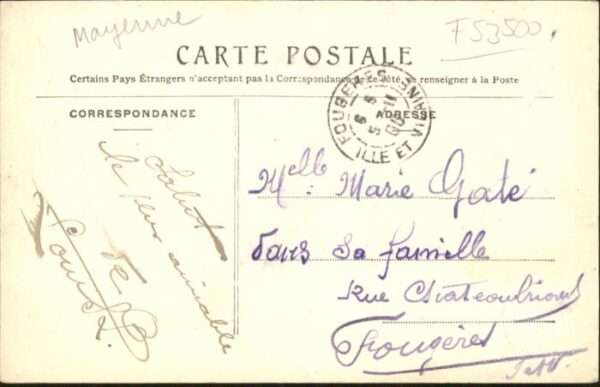 Mayenne
F53500
CARTE POSTALE
Certains Pays Étrangers n'acceptant pas la Correspondance de ce côté, se renseigner à la Poste
CORRESPONDANCE
ADRESSE
FOUGÈRES
ILLE ET VILAINE
Salut
le plus aimable
de
Melle: Marie Gaté
dans sa famille
Rue Chateaubriand
Fougères
I et V.